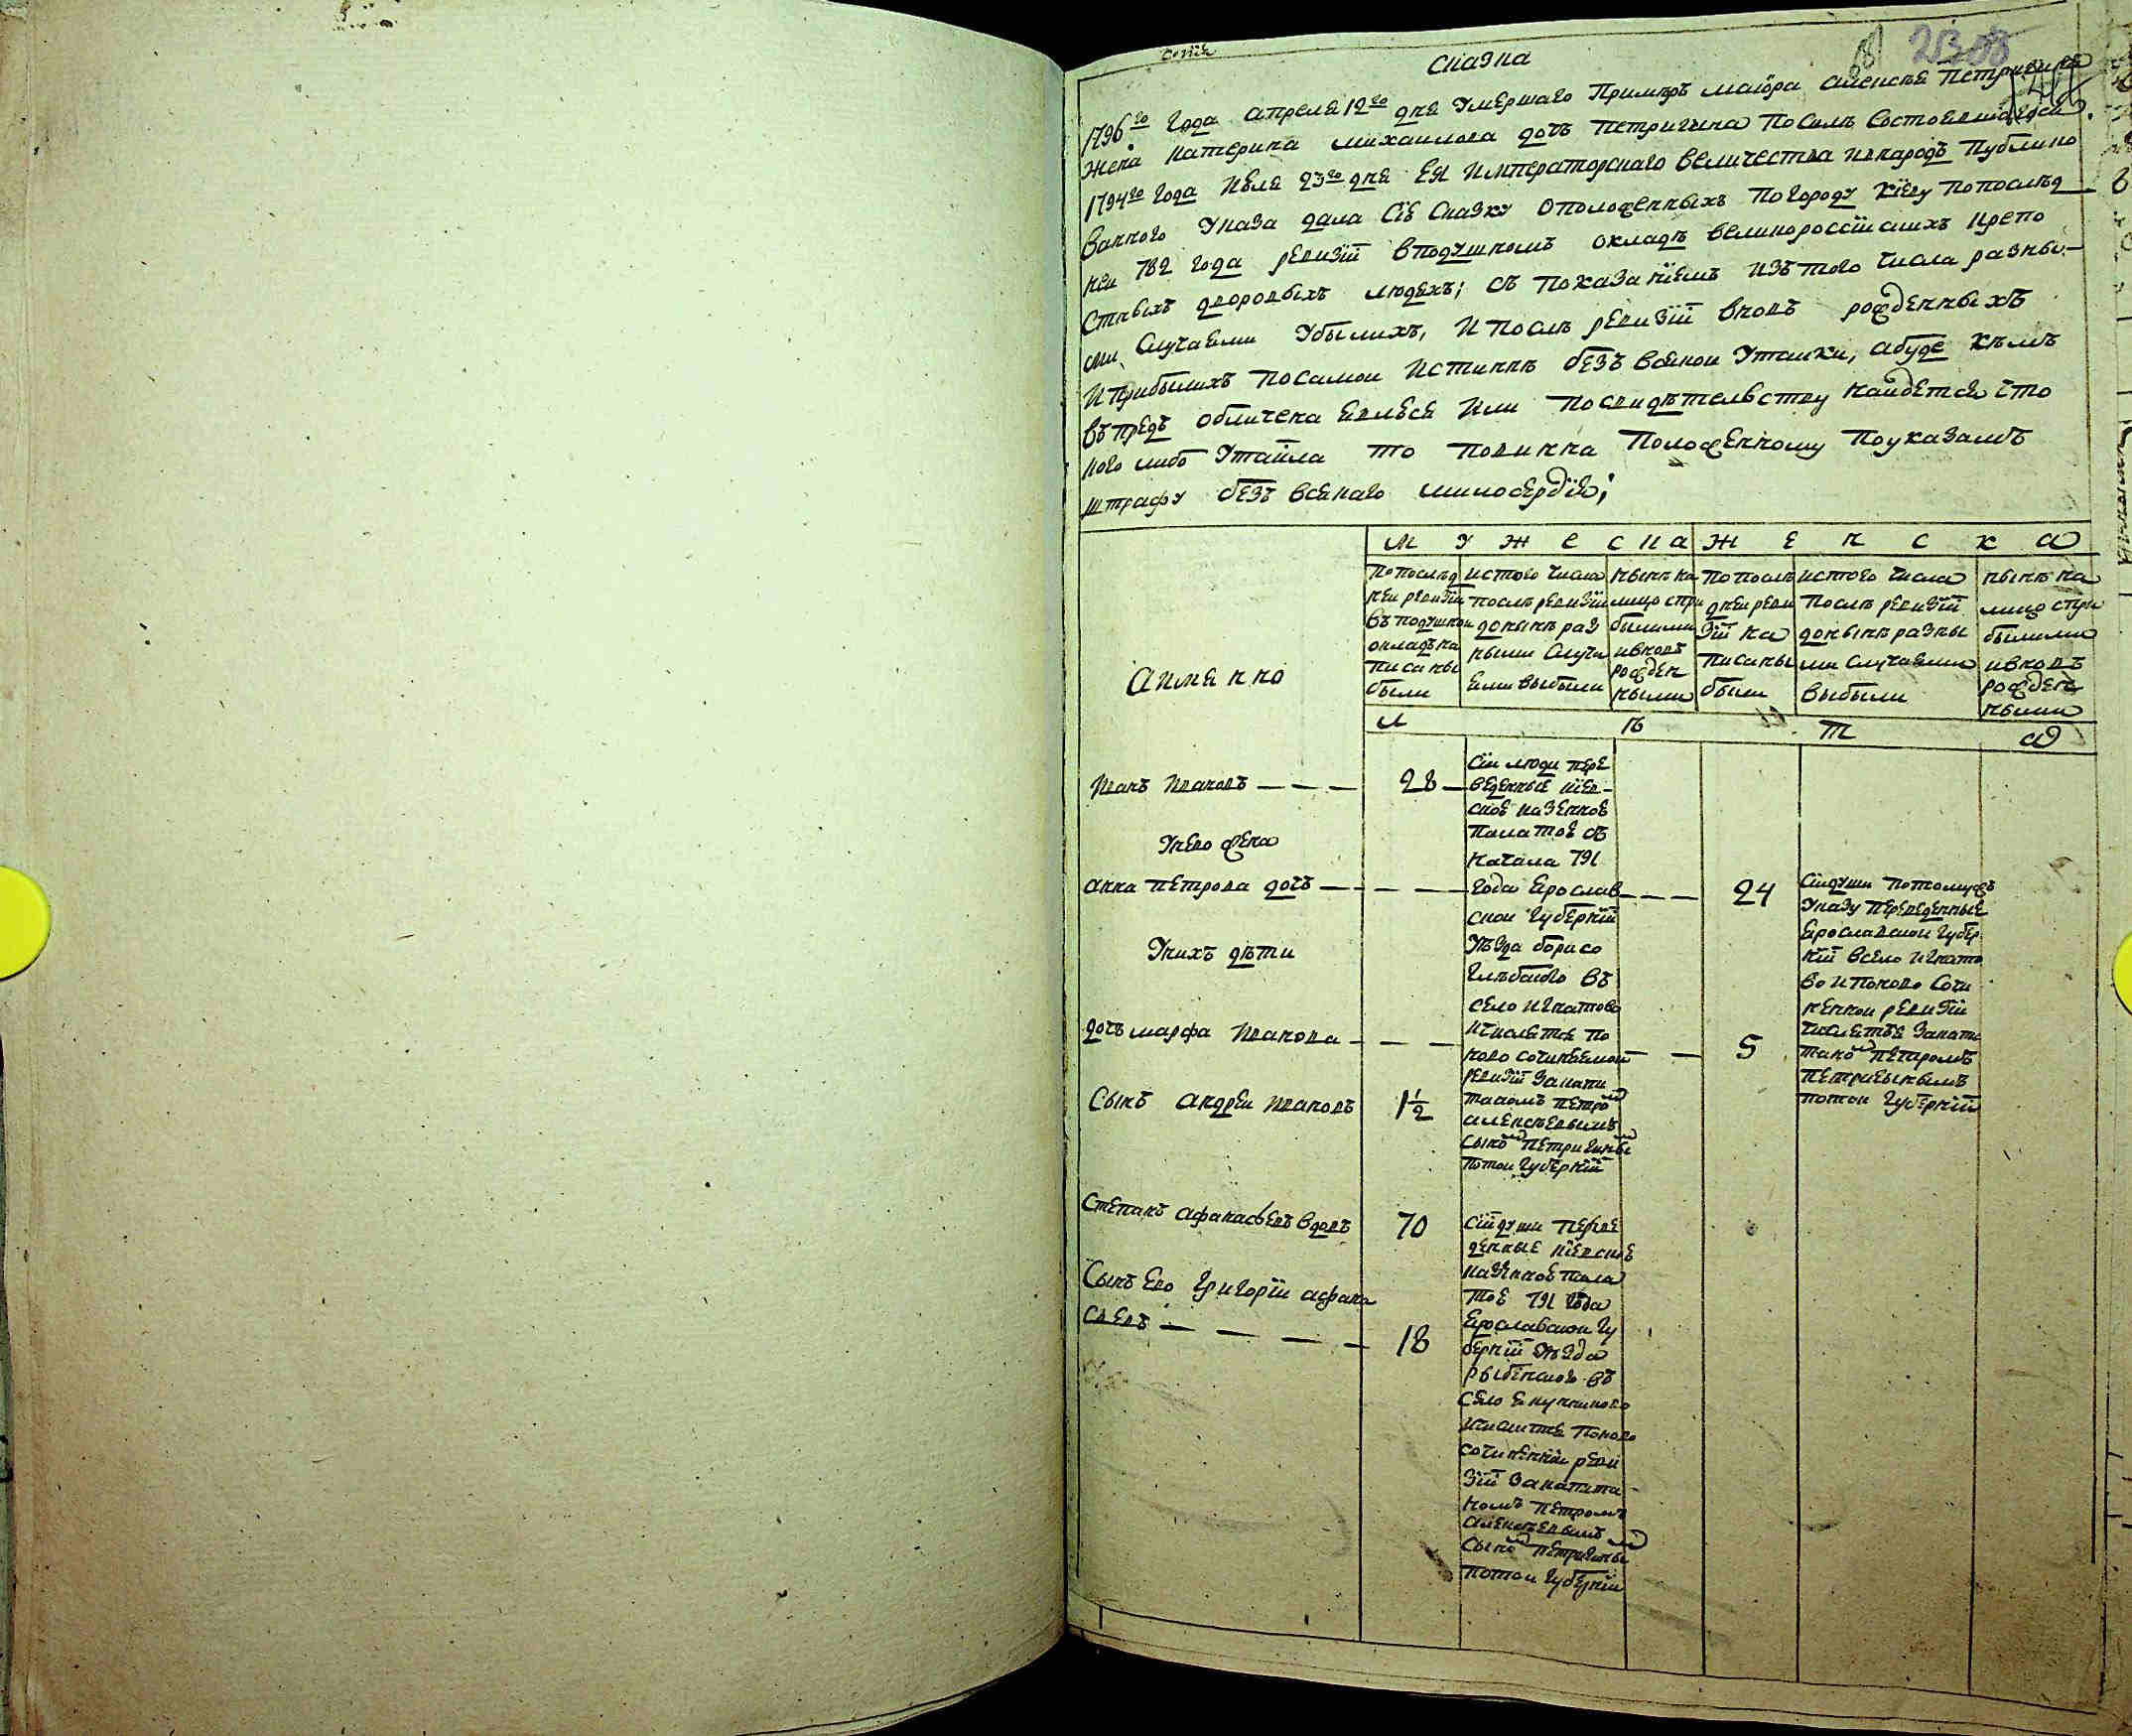 копія
сказка
1796го года апреля 12го дня умершаго Примиръ маиора алексея Петригина
жена катерина михаилова дочь петригина По силѣ состоявшагося
1794го года июля 23го дня ЕЯ Императорскаго величества и в народъ Публико
ваннаго указа дала сию сказку о положенныхъ По городу Кїеву по последъ
неи 782 года ревизїи в подушномъ окладѣ великороссїискихъ крепо
стныхъ дворовыхъ людехъ; съ показанїемъ изъ того числа разны
ми случаями убылихъ, и послѣ ревизїи вновь рожденныхъ
и прибылихъ по самои истиннѣ безъ всякои утаики, а буде кемъ
въпредь обличена явлюся или по свидѣтельству наидется что
кого либо утаила то повинна положенному по указамъ
штрафу безъ всякаго милосердїя;
мужеска женска
а имянно
По последнеи ревизїи въ подушномъ окладѣ написаны были
ис того числа послѣ ревизїи до нынѣ разными случаями выбыли
нынѣ на лицо с прибылими и вновь рожденными
По последнеи ревизїи написаны были
ис того числа послѣ ревизїи до нынѣ разными случаями выбыли
нынѣ на лицо с прибылими и вновь рожденными
лѣта
Иванъ Ивановъ 28
сїи люди пере
веденные кїев
скою казенною
Палатою съ
начала 791
года Ярослав
скои губернїи
уѣзда борисо
глѣбского въ
село игнатово
и числятся по
ново сочиняемои
ревизїи за капи
таномъ петром
алексѣевымъ
сыном петригины
по тои губернїи
у нево жена
анна петрова дочь 24
сїи души по томужъ
указу переведенные
Ярославскои губер
нїи в село игнато
во и по ново сочи
ненной ревизїи
числятся за капи
таном петромъ
петригинымъ
по тои губернїи
у них дѣти
дочь марфа Иванова 5
Сынъ андреи Ивановъ 1½
Степанъ афанасьевъ вдовъ 70
сїи души переве
денные кїевскою
казенною пала
тою 791 года
Ярославскои гу
бернїи уѣзда
рыбенского въ
село
и числится по ново
сочиненнои реви
зїи за капита
номъ петромъ
алексѣевымъ
сыном петригины
по тои губернїи
Сынъ ево григорїи афана
сьевъ 18